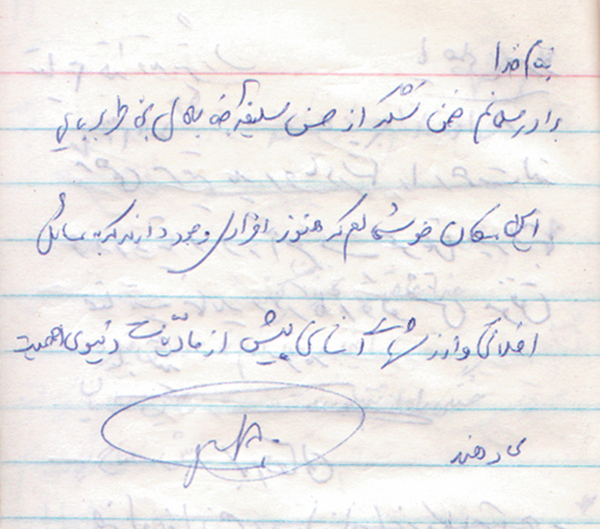 بنام خدا
برادر مسلمانم ضمن تشکر از حسن سلیقه
این مکان خوشحالم که هنوز افرادی وجود دارند که به مسائل
اخلاقی و ارزشهای انسانی بیش از مادیات دنیوی اهمیت
می دهند